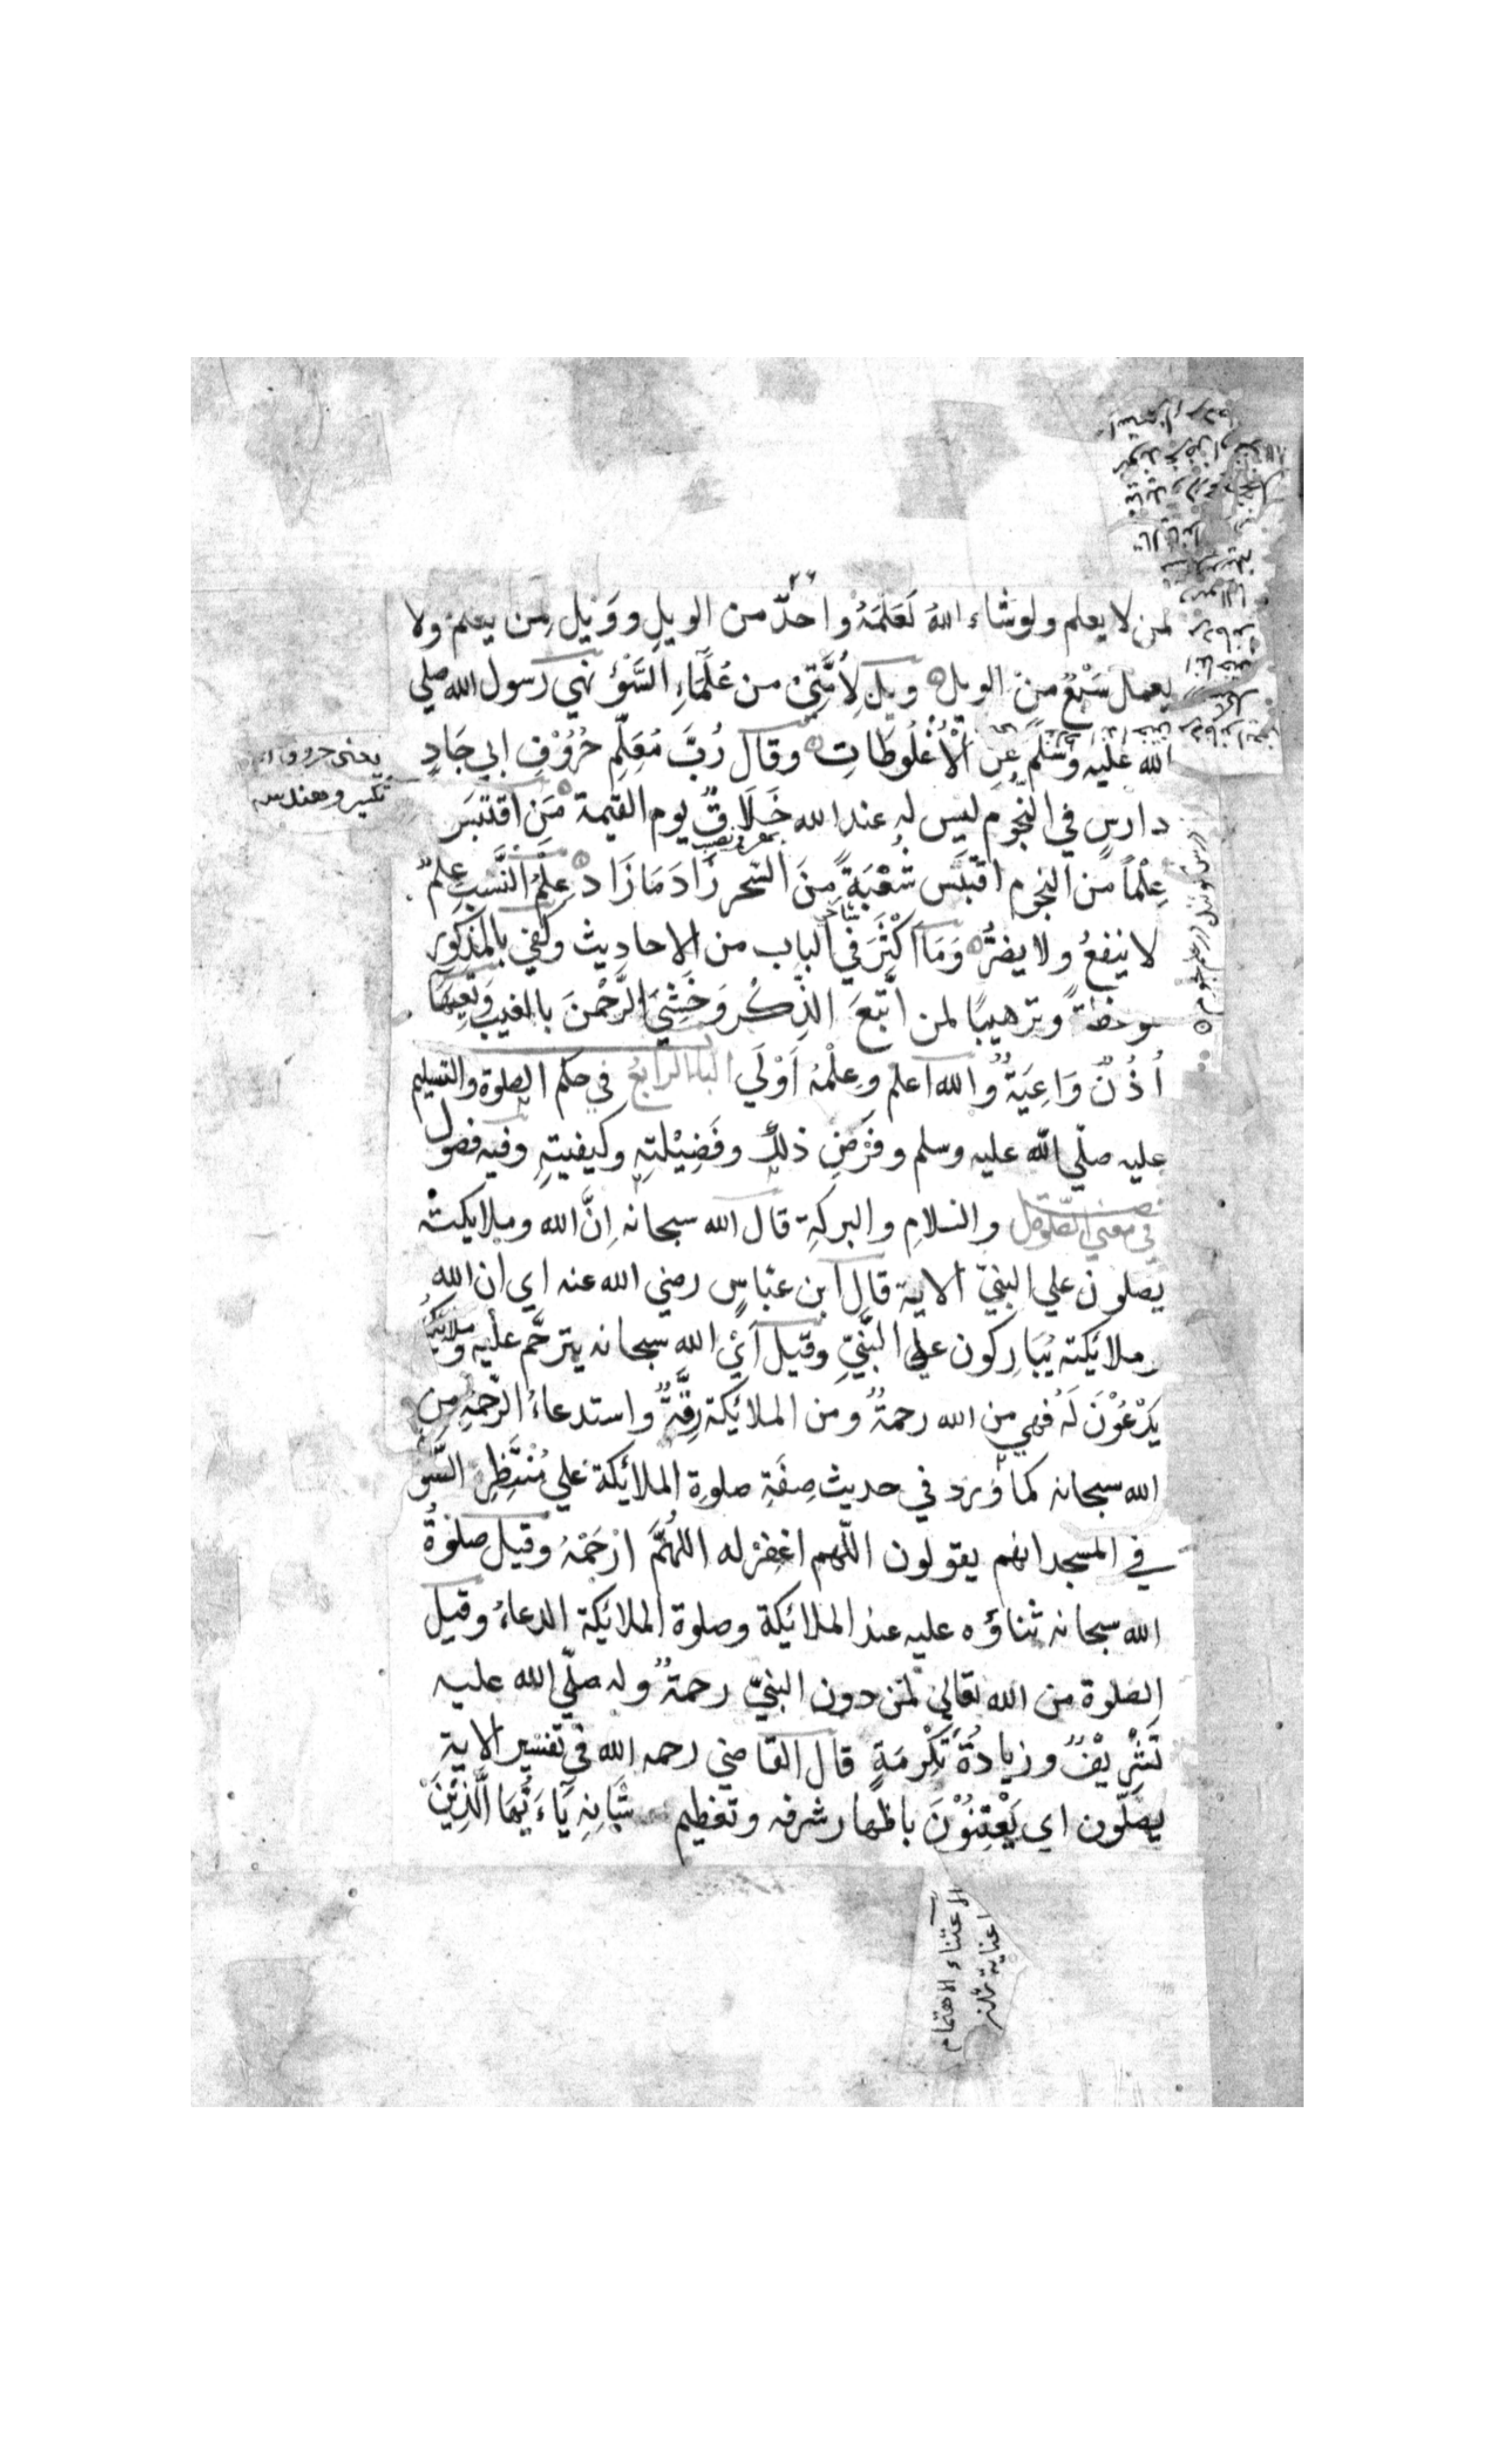 ٢٦
لمن لا يعلم ولو شاء اللهُ لَعَلَّمَهُ واحدٌ من الويلِ وَوَيْلٌ لِمَن يعلمُ ولا
يعمل سَبْعٌ منَ الويل ويلٌ لِأُمَّتِيْ من عُلَمَاءِ السَّوْءِ نهي رسول الله صلي
الله عليه وَسلم عَنِ الْأُغْلُوطَاتِ وقال رُبَّ مُعَلِّمِ حُرُوْفِ ابي جَادٍ
دارسٍ في النّجُوم ليس له عند الله خَلَاقٌ يوم القيمة مَنِ اقْتَبَسَ
عِلْماً من النجوم اقتبَسَ شُعْبَةً مِنَ السّحر زَادَ مَا زَادَ عِلْمُ النَّسَبِ عِلمٌ
لا ينفعُ ولا يضرُّ وَمَا اكْثَرَ في الباب من الاحاديث وكفي بالمذكور
وعظةً وترهيبًا لمن اتَّبَعَ الذِّكْرَ وَخَشِيَ الرَّحْمنَ بالغيب وَتَعِيَهَا
اُذُنٌ وَاعِيَةٌ والله اعلم وعِلْمُهُ اَوْلَي الباب الرابعُ في حكم الصلوة والتسليم
عليه صلّي الله عليه وسلم وفَرْضِ ذلك وفَضِيْلتِه وكيفيتِه وفيه فصول
فصل في معني الصّلوة والسلامِ والبركةِ قال الله سبحانه اِنَّ الله وملايكته
يصلون علي النبيّ الاية قال ابن عبّاسٍ رضي الله عنه اي ان الله
وملائكته يُبَارِكون علي النَّبِيِّ وقيل اَيْ الله سبحانه يترحّم عليه وملائكته
يَدْعُوْنَ لَهُ فهي من الله رحمةٌ ومن الملائكة رِقَّةٌ واستدعاءُ الرّحمةِ من
الله سبحانه كما وَرد في حديث صِفَةِ صلوةِ الملائكة علي مُنْتَظِرِ الصَّلو
في المسجد انهم يقولون اللّهم اغْفِرْ له اللهُمَّ ارْحَمْهُ وقيل صلوةُ
الله سبحانه ثناؤه عليه عند الملائكة وصلوة الملائكة الدعاءُ وقيل
الصلوة من الله تعالي لمن دون النبيّ رحمةٌ وله صلّي الله عليه
تَشْرِيْفٌ وزيادةُ تَكْرِمَةٍ قال القاضي رحمه الله في تفسير الاية
يصلّون اي يَعْتَنُوْنَ باظهار شرفه وتعظيم شَانِهِ يَاءَيُّهَا الَّذِيْنَ
يعني حروف
تكسير وهندسه
درس در علم نجوم
الاعتناء الاهتمام